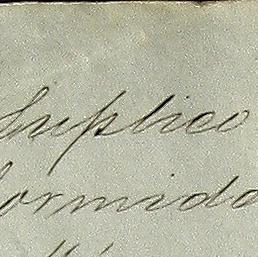 Suplico
ormida